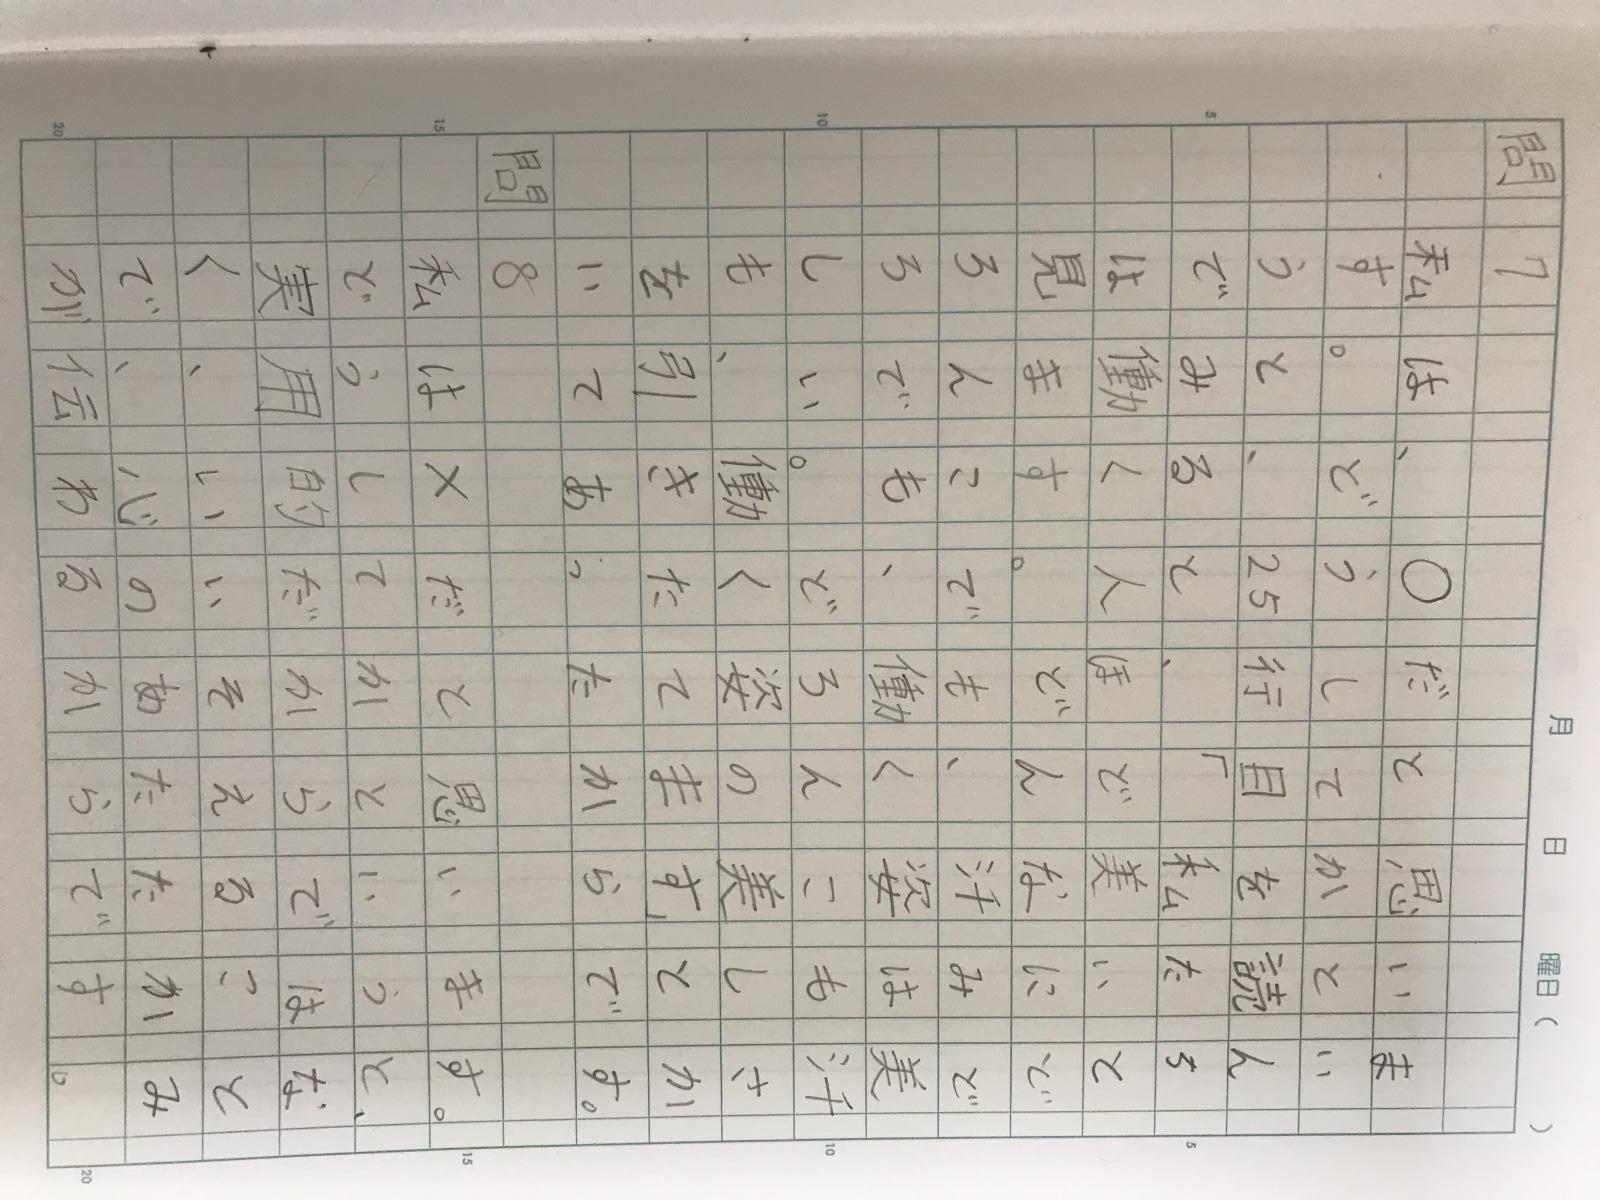 月 日 曜日（ ）
5
10
15
20
問7
私は、〇だと思いま
す。どうしてかとい
うと、25行目を読ん
でみると、「私たち
は働く人ほど美いと
見ます。どんなにど
ろんこでも、汗みど
ろでも、働く姿は美
しい。どろんこも汗
も、働く姿の美しさ
を引きたてます」とか
いてあったからです。
問8
私は×だと思います。
どうしてかというと、
実用的だからではな
く、いいそえること
で、心のあたたかみ
が伝わるからです。
5
10
15
20